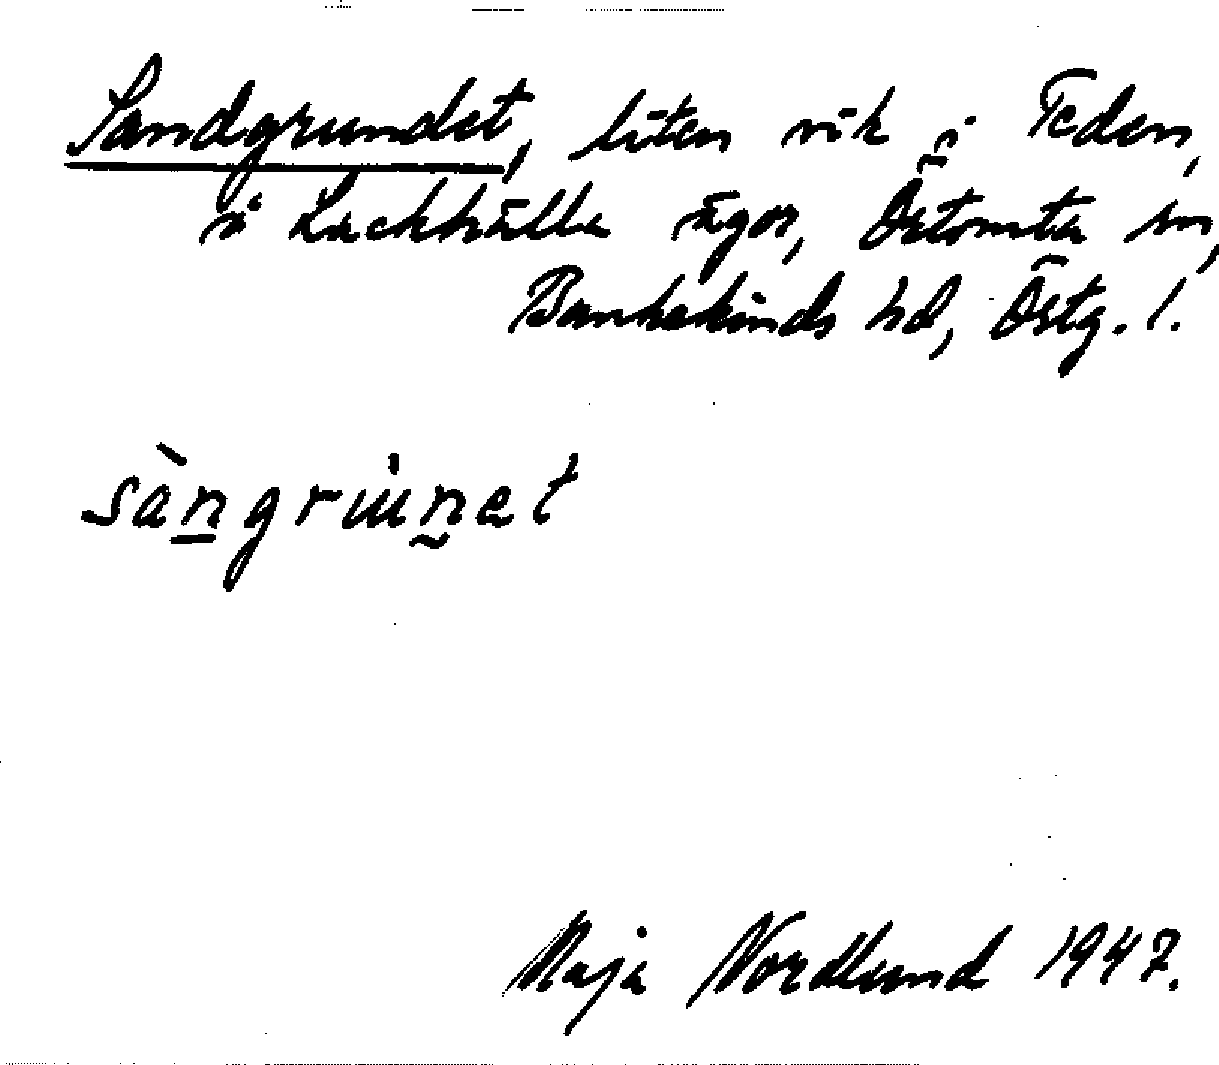 Sandgrundet, liten vik i Teden,
å Lackhälla ägor, Östomta sn,
Bankekinds hd, Östg. l.
sàngruṇet
Maja Nordlund 1947.